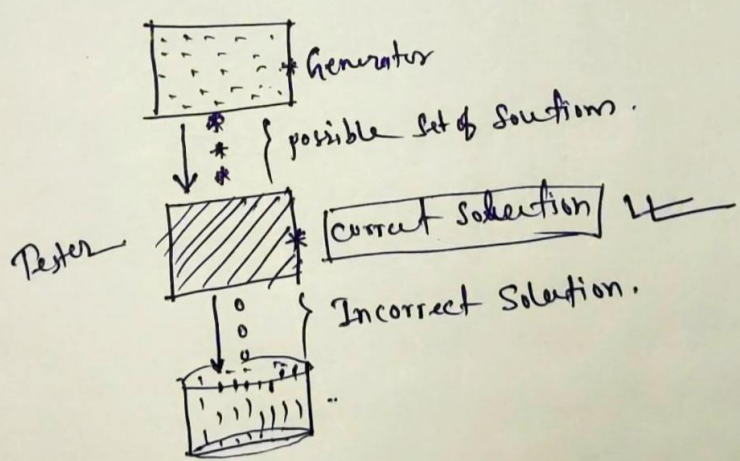 Generator
possible set of Soutions.
Tester
Currect Soluction
Incorrect Solution.